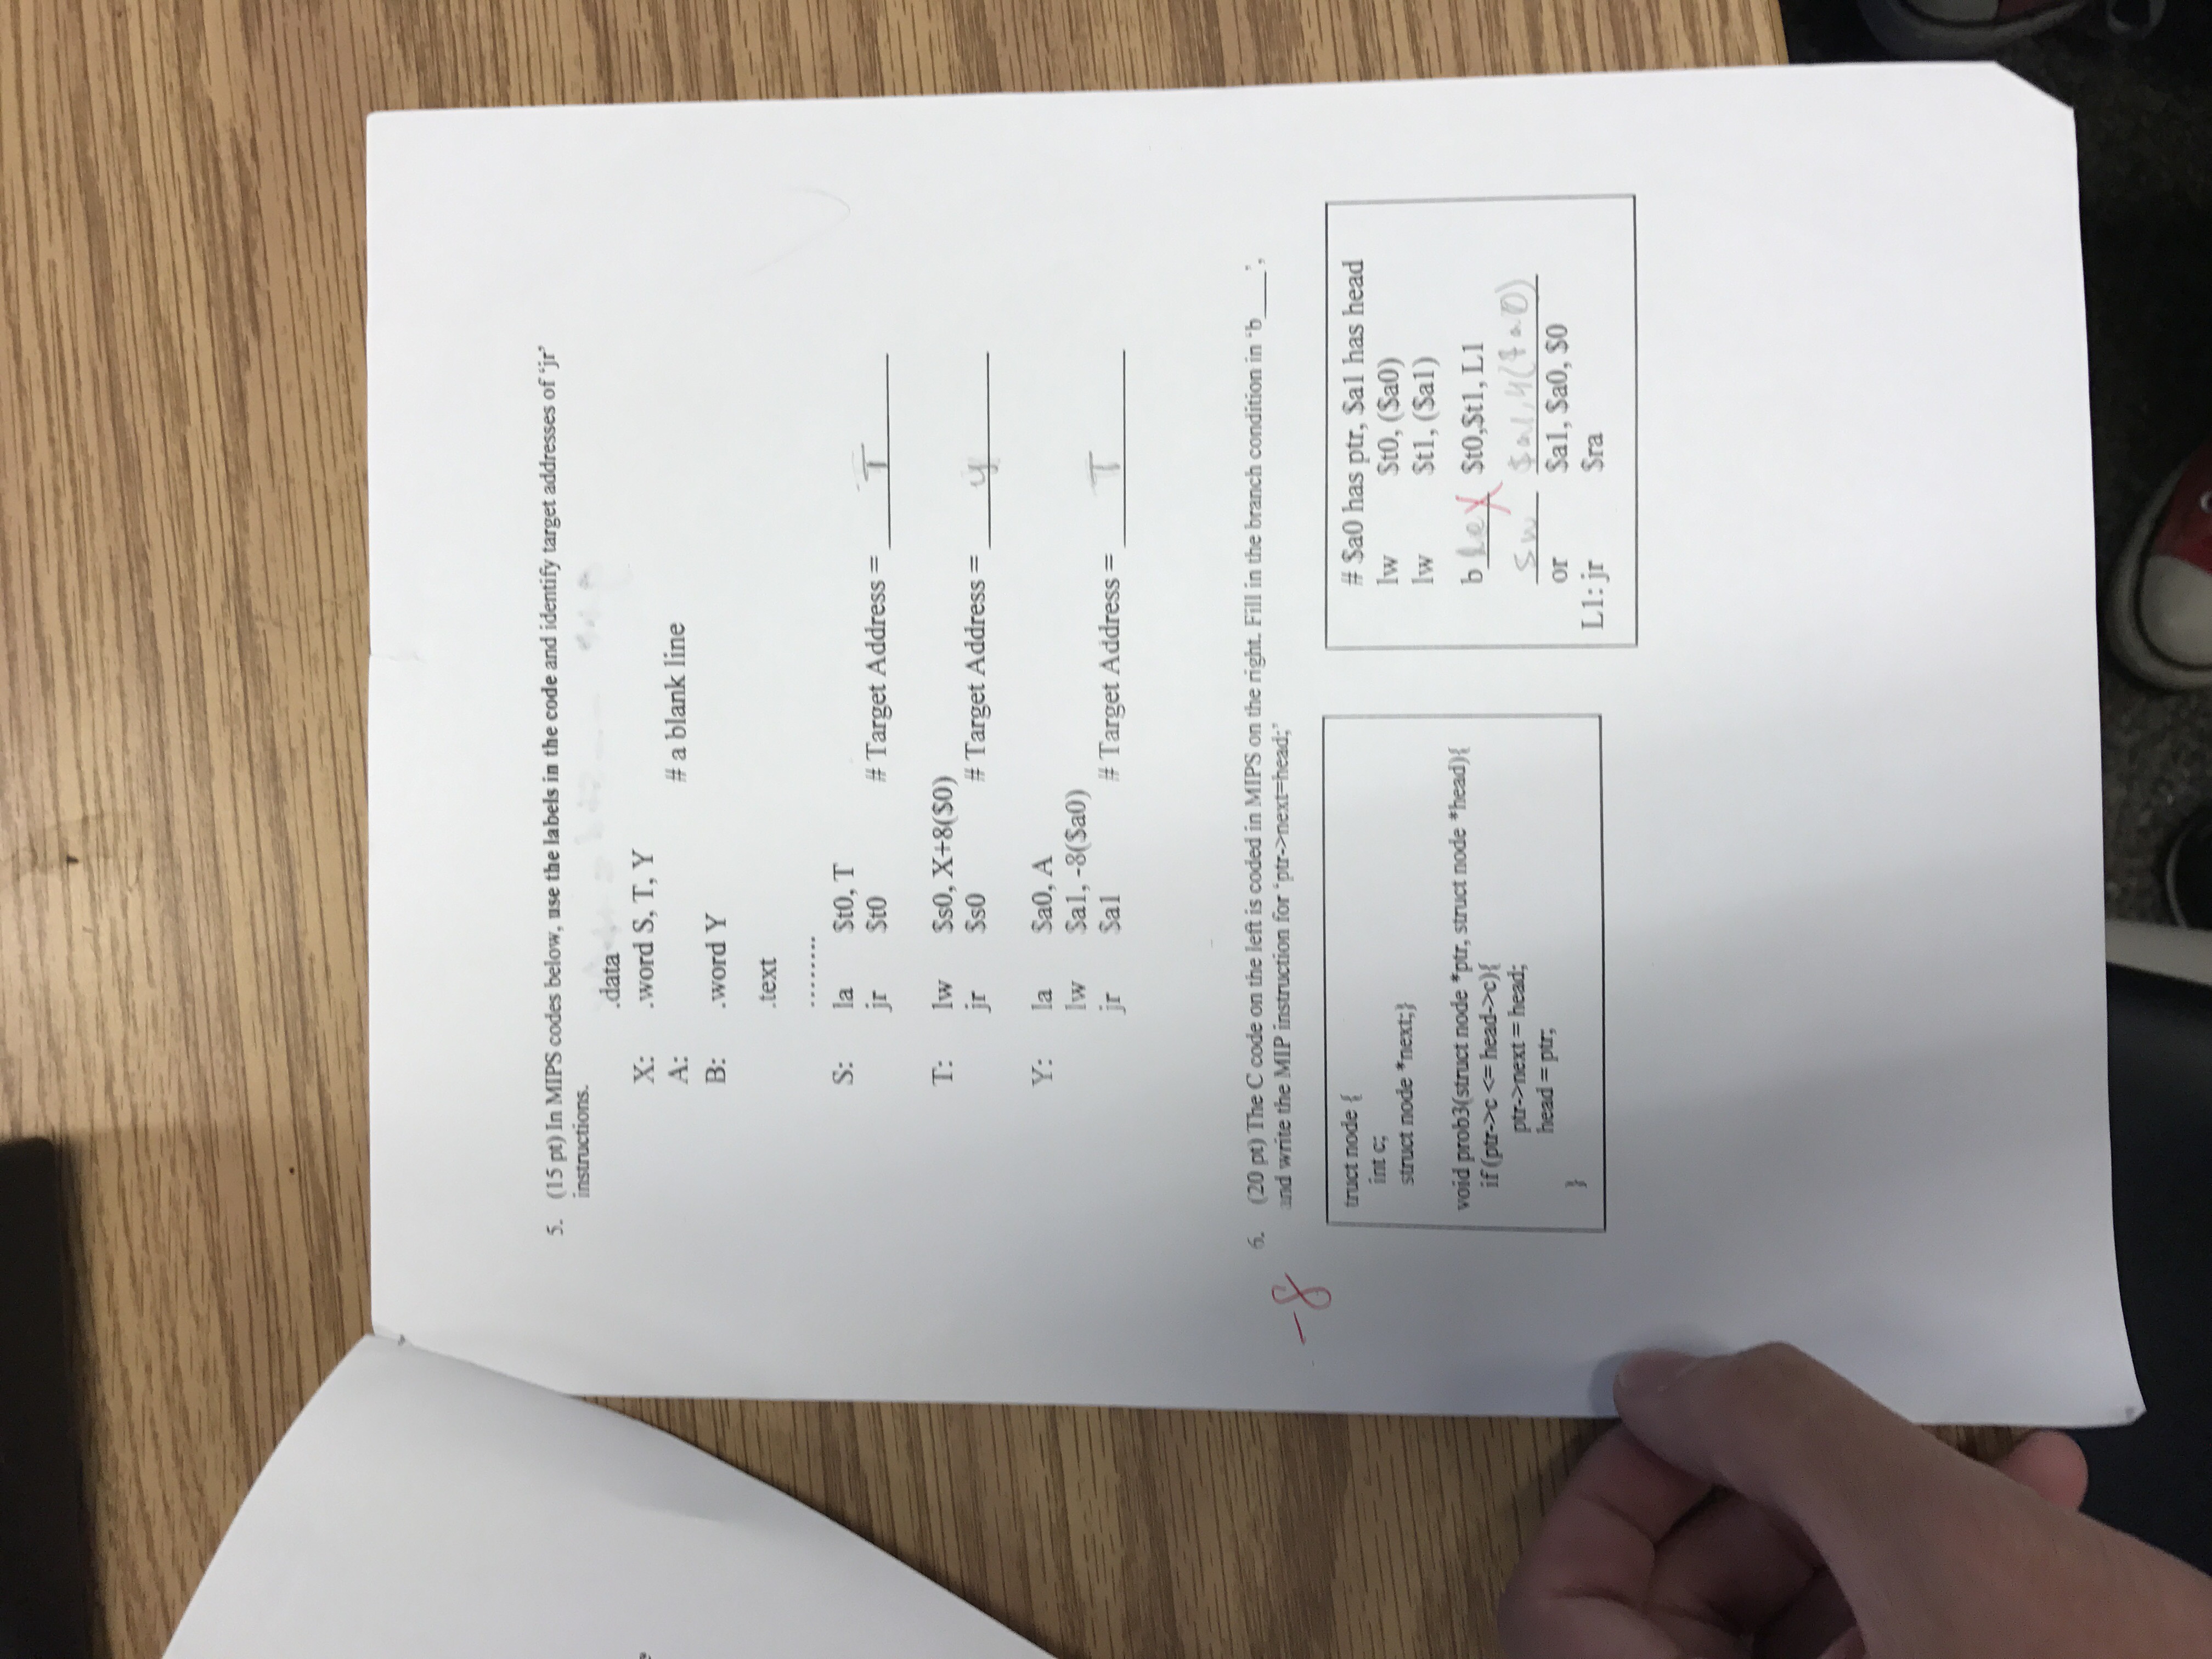 5. (15 pt) In MIPS codes below, use the labels in the code and identify target addresses of 'jr'
instructions.
.data
X: .word S, T, Y
A: # a blank line
B: .word Y
.text
........
S: la $t0, T
jr $t0 # Target Address = T
T: lw $s0, X+8($0)
jr $s0 # Target Address = y
Y: la $a0, A
lw $a1, -8($a0)
jr $a1 # Target Address = T
-8
6. (20 pt) The C code on the left is coded in MIPS on the right. Fill in the branch condition in 'b____',
and write the MIP instruction for 'ptr->next=head;'
truct node {
int c;
struct node *next;}
void prob3(struct node *ptr, struct node *head){
if (ptr->c <= head->c){
ptr->next = head;
head = ptr;
}
# $a0 has ptr, $a1 has head
lw $t0, ($a0)
lw $t1, ($a1)
b le X $t0,$t1, L1
sw $a1,4($a0)
or $a1, $a0, $0
L1: jr $ra